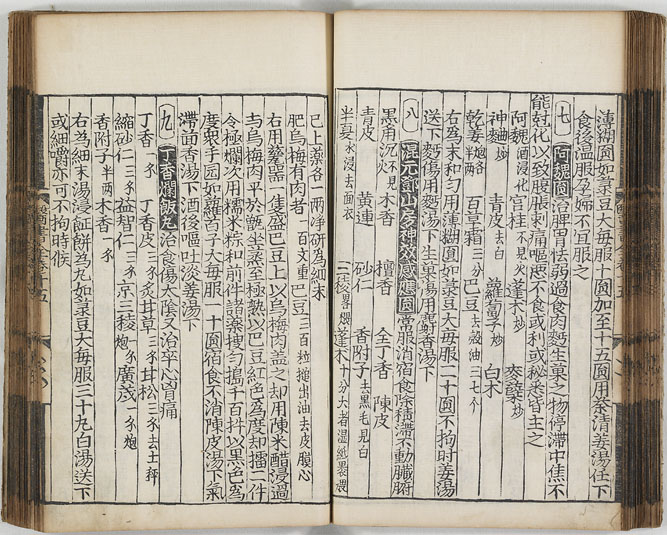 薄糊圓如菉豆大每服十圓加至十五圓用柰清姜湯任下
食後溫服孕婦不宜服之
七 阿魏圓 治脾胃怯弱過食肉麪生菓之物停滯中焦不
能尅化以致腹脹刺痛嘔惡不食或利或秘悉皆主之
阿魏 酒浸化 官桂 不見火 蓬术 炒 麥糵 炒
神麯 炒 青皮 去白 蘿蔔子 炒 白术
乾姜 炮各半兩 百草霜 三分 巴豆 去殼油三七个
右為末和勻用薄糊圓如菉豆大每服二十圓不拘時姜湯
送下麪傷用麪湯下生菓湯用麝香湯下
八 混元鄧山房神效感應圓 常服消宿食除積滯不動臟腑
黑角沉 不見火 木香 檀香 全丁香 陳皮
青皮 黃連 砂仁 香附子 去黑毛見白
半夏 水浸去面衣 三稜 蓬术
已上藥各一兩淨研為細末
肥烏梅有肉者 一百文重 巴豆 三百粒搥出油去皮膜心
右用甆器一隻盛巴豆上以烏梅肉盖之却用陳米醋浸過
与烏梅肉平於甑坐蒸至極熟以巴豆紅色為度却擂二件
令極爛次用糯米粽和前件諸藥搜勻搗千百杵以黑色為
度衆手圓如蘿蔔子大每服一十圓宿食不消陳皮湯下氣
滯茴香湯下酒後嘔吐淡姜湯下
九 丁香爛飯丸 治食傷太陰又治卒心胃痛
丁香 一錢 丁香皮 三錢 炙甘草 三錢 甘松 三錢去土秤
縮砂仁 三錢 益智仁 三錢 京三稜 炮一錢 廣茂 一錢炮
香附子 半兩 木香 一錢
右為細末湯浸䭔餅為丸如菉豆大每服三十丸白湯送下
或細嚼亦可不拘時候